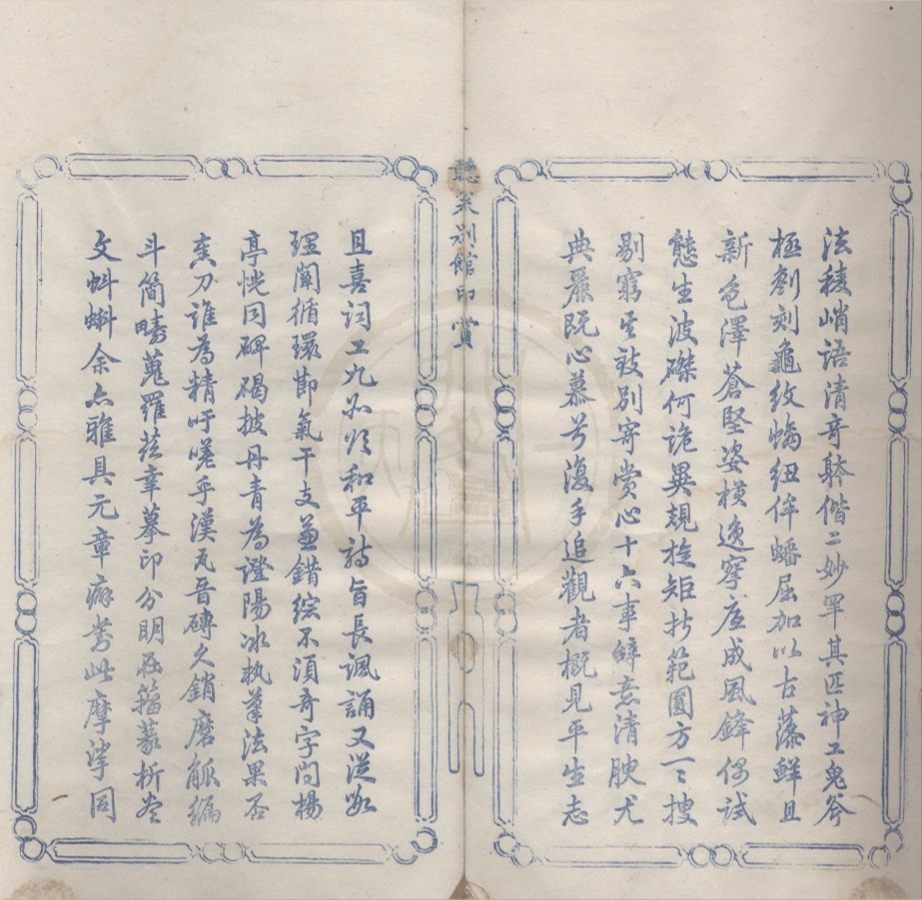 法稜峭語清奇躰偕二妙罕其匹神工鬼斧
極劖刻龜紋螭紐伴蟠屈加以古藻鮮且
新色澤蒼堅姿横逸寧度成風鋒偶試
態生波磔何詭異規旋矩折範圓方一〻搜
剔窮別寄賞心十六事辭意清腴尤
典麗既心慕兮復手追觀者概見平生志
聽 別館印賞
且喜詞工九 和平詩旨長諷誦又從
理闡循環節氣干支並錯綜不須奇字問楊
亭恍同碑碣披丹青為證陽冰執筆法果否
刀誰為精吁嗟乎漢瓦晉磚久銷磨觚編
斗簡疇蒐羅茲幸摹印分明在籀篆析
文蝌蚪余亦雅具元章癖對此摩挲同